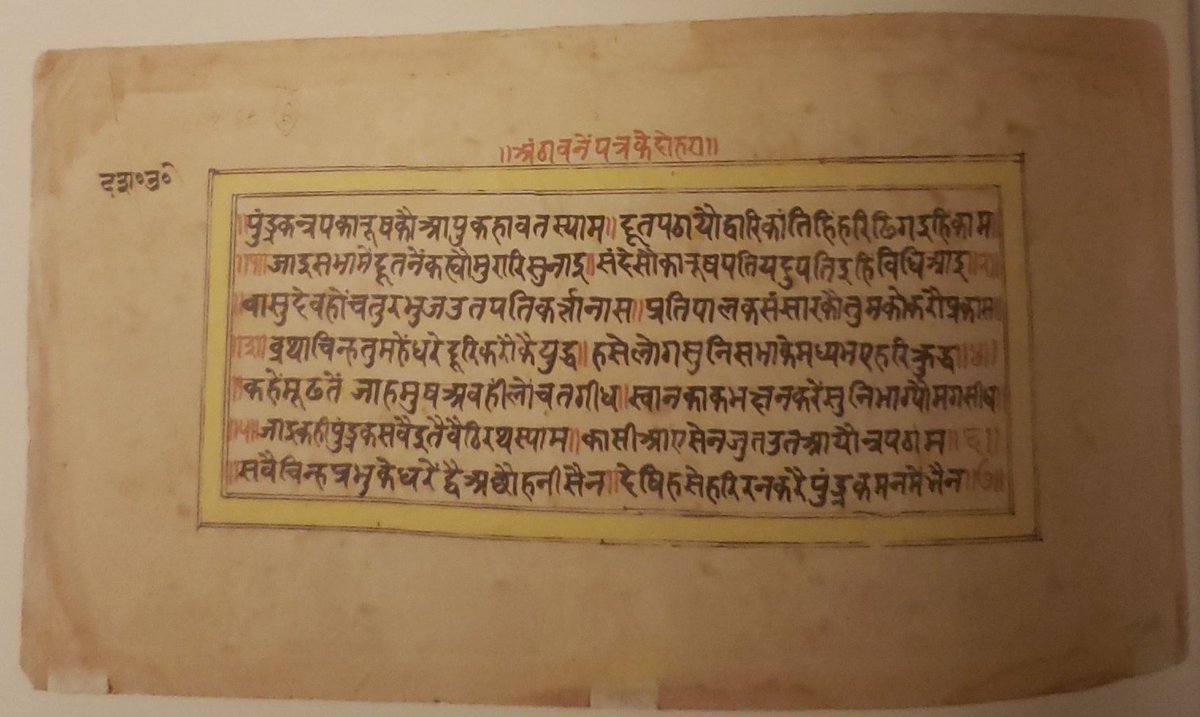 ॥अंठावनें पत्र के दोहरा॥
दश॰उ॰
॥पुंड्रक न्रप कारूष कौ आपु कहावत स्याम॥ दूत पठायौ द्वारिकां तिहिं हरि ढिग इहि काम
॥१॥जाइ सभा मै दूत नें कह्यौ मुरारि सुनाइ॥संदेसौ कारूष पति यदुपति इहि विधि आइ॥२॥
बासुदेव हों चतुरभुज उतपति कर्त्ता नास॥प्रतिपालक संसार कौ तुमकों करौं प्रकास
॥३॥ब्रथा चिन्ह तुम हैं धरे दूरि करौ कै युद्ध॥हसे लोग सुनि सभा के मध्य भए हरि क्रुद्ध॥४॥
कहें मूढ तें जाह मुष अवही लोंचत गीध॥स्वान काक भछन करें सुनि भाग्यौ मग सीध
॥५॥जाइ कही पुंड्रक सबै इतै बैठि रथ स्याम॥कासी आए सेन जुत उत आयौ न्रप ठाम॥६॥
सबै चिन्ह प्रभु के धरें द्वै अछौहनी सैन॥देषि हसे हरि रन करै पुंड्रक मन में भै न॥७॥